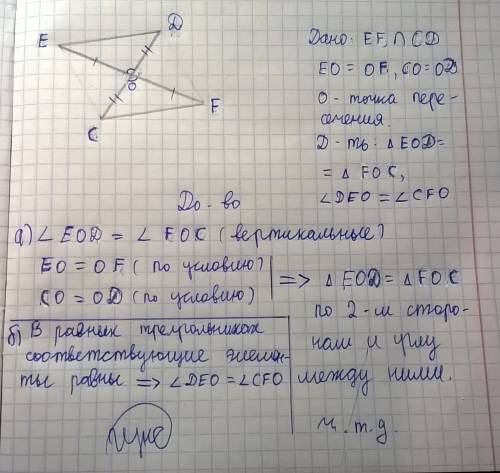 E
D
O
F
C
Дано: EF ∩ CD
EO = OF, CO = OD
O - точка пере-
сечения.
Д-ть: △EOD =
= △FOC,
∠DEO = ∠CFO
До-во
а) ∠EOD = ∠FOC (вертикальные)
EO = OF (по условию)
CO = OD (по условию)
=> △EOD = △FOC
по 2-м сторо-
нам и углу
между ними.
б) В равных треугольниках
соответствующие элемен-
ты равны => ∠DEO = ∠CFO
ч.т.д.